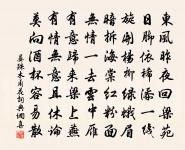 東風昨夜回梁苑
日腳依稀添一線
旋開楊柳綠蛾眉
暗拆海棠紅粉面
無情一去雲中雁
有意歸來梁上燕
有情無意且休論
莫向酒杯容易散
晏殊木蘭花詞典網